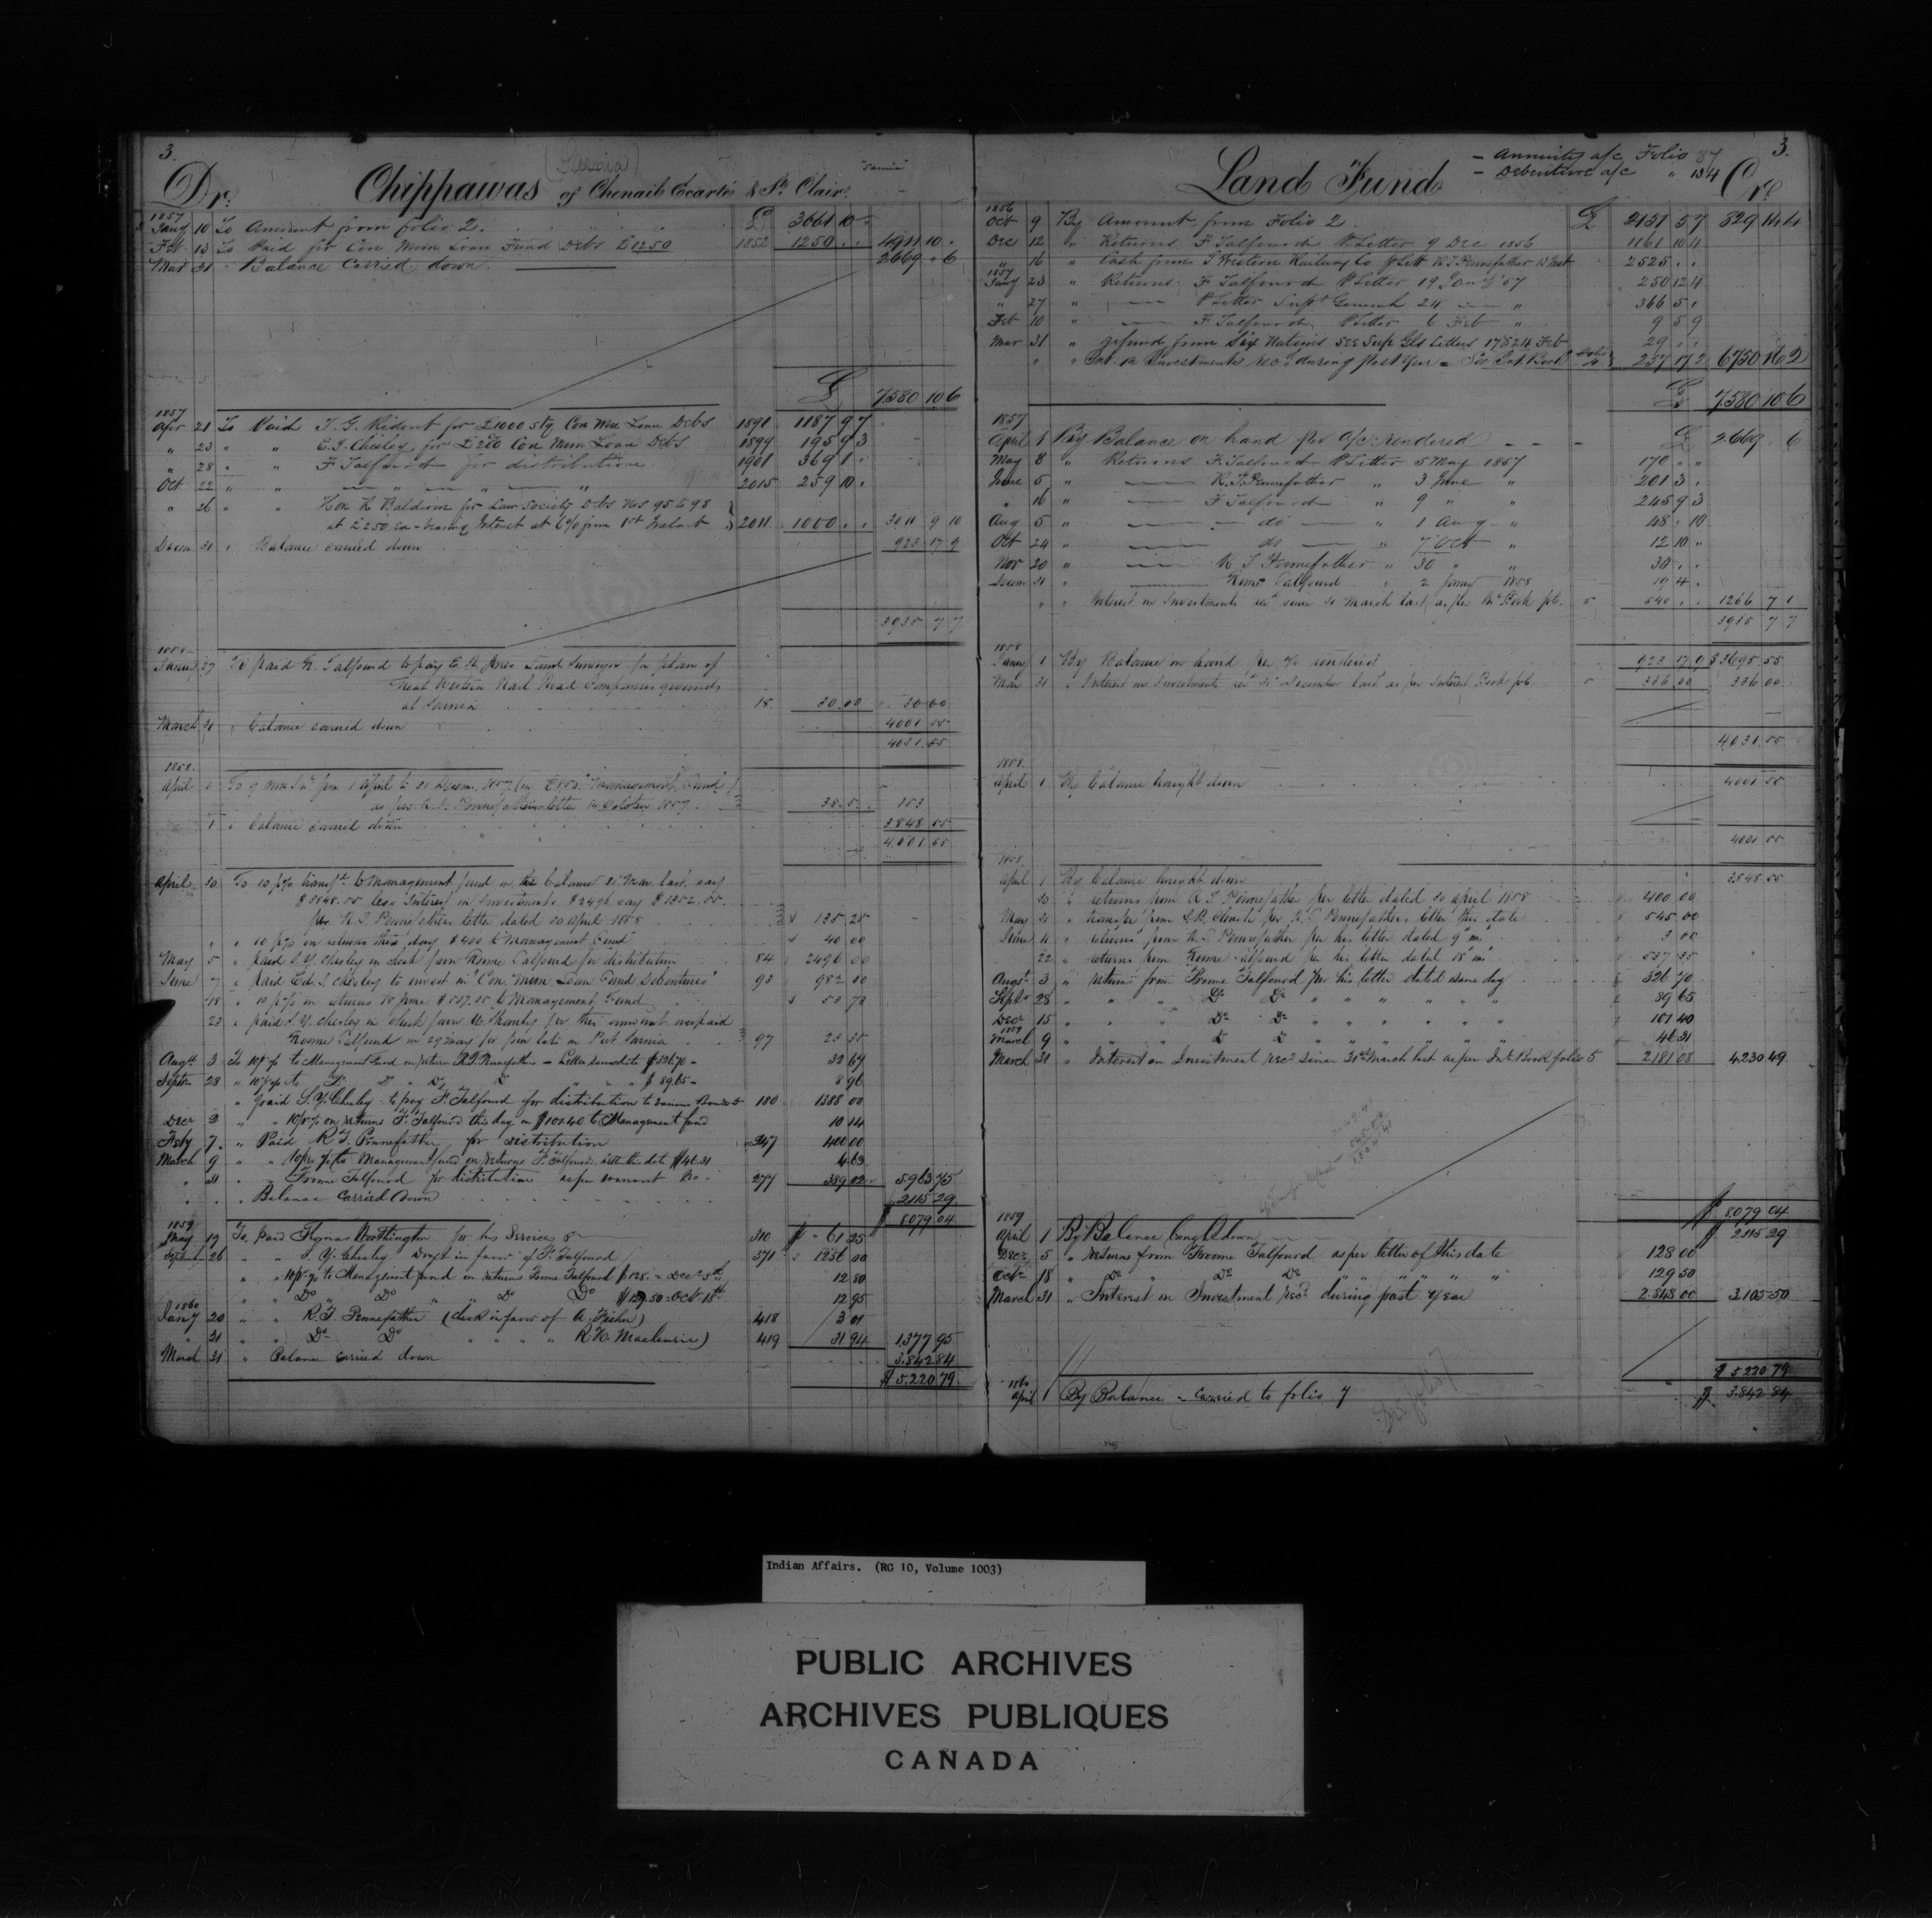 3.
(Sarnia)
"Sarnia"
Dr.
Chippawas of Chenail Ecarté & St. Clair.
1857
Jany 10 To Amount from folio 2. £ 3661 10 -
Feb 13 To Paid for Con Mun Loan Fund Debs £1250 1852 1250 . . 4911 10 .
Mar 31 " Balance Carried down. 2669 . 6
£ 7580 10 6
1857
Apr 21 To Paid T. G. Ridout for £1000 Stg Con Mun Loan Debs 1891 1187 9 7
" 23 " " E. T. Chesley for £200 Con Mun Loan Debs 1899 195 9 3
" 28 " " F Talfourd for distribution 1901 369 1 .
Oct 22 " " — " — " — " 2015 259 10 .
" 26 " " Hon R Baldwin for Law Society Debs Nos 95 to 98
at £250 ea - bearing Interest at 6% from 1st Instant 2011 1000 . . 3011 9 10
Decem 31 " Balance carried down 923 17 9
3935 7 7
1858
January 27 To paid F. Talfourd to pay Land Surveyor for plan of
Great Western Rail Road Companies grounds
at Sarnia 18 30.00 30 00
March 31 " balance carried down 4001 55
4031.55
1858.
April 1 To 9 mos from 1 April to 31 Decem. 1857 "Management Fund"
as per R. T. Pennefather's letter 14 October 1859. 38.5. . 153
1 " balance carried down 3848 55
4.001 55
April 30 To 10 p% transfd to Management fund on the balance 31 Mar last, say
$3848.55 less Interest on Investments $2496, say $1352.55.
per R. T. Pennefathers letter dated 30 April 1858 135 25
" " 10 p% on returns this day $400 to "Management Fund" 40 00
May 5 " paid S. Y. Chesley in check favor Froome Talfourd for distribution 84 2496 00
June 7 " paid Ed. T. Chesley to invest in "Con. Mun. Loan Fund Debentures" 93 982 00
18 " 10 p% on returns 18 June $537.35 to Management Fund 53 73
23 " paid S. Y. Chesley in check favor for this amount overpaid
Froome Talfourd on 29 May for lots in Port Sarnia 97 23 35
Augst 3 To 10 p% to Management Fund on return R. T. Pennefather - Letter same date $326.70 - 32 67
Septr 28 " 10 p% to Do Do " Do Do " " " $89.65 - 8 96
" paid S. Y. Chesley to pay F. Talfourd for distribution to Sarnia Bands 180 1388 00
Decr 2 " " 10 p% on returns F. Talfourd this day on $101.40 to Management fund 10 14
Feby 7. " Paid R T. Pennefather for distribution 247 400 00
March 9 " " 10 p% to Management fund on returns F. Talfourds letter this date $46.31 4.63
" 31 " " Froome Talfourd for distribution as per warrant No. 277 389 02 5.963 75
" . " Balance Carried down 2115 29
$ 8079 04
1859
May 19 To paid Worthington for his Services 310 $ 61 25
September 26 " " S. Y. Chesley Draft in favor of F. Talfourd 371 1256 00
" " 10 p% to Management fund on returns Froome Talfourd $128. - Decr 5th 12 80
" " Do " Do " " Do Do $129.50 - Oct 18th 12 95
1860
Jany 20 " " R. T. Pennefather (check in favor of A. Fisher) 418 3 01
31 " " Do Do " " " " R. H. Mackenzie) 419 31 94 1377 95
March 31 " Balance carried down 3.842 84
$ 5.220 79
Land Fund
- Annuity a/c Folio 87
- Debenture a/c " 134
3.
Cr.
1856
Oct 9 By Amount from Folio 2 £ 2151 5 7 829 14 4
Dec 12 " Returns F. Talfourds P. Letter 9 Dec 1856 1161 10 4
" 16 " Cash from G Western Railway Co P Lett R. T Pennefather 13 Inst 2525 . .
1857
Jany 23 " Returns F Talfourds P Letter 19 Jany '57 250 12 4
" 27 " — P Letter Supt General 24 — " 366 5 .
Feb 10 " — F Talfourds P Letter 6 Feb " 9 5 9
Mar 31 " Refund from Six Nations see Supt Gls Letters 17 & 24 Feb 29 . .
" " Int. on Investments recd during past Year = See Int. Book folio 4 257 17 2 6750 16 2
£ 7580 10 6
1857
April 1 By Balance on hand per a/c rendered - - - £ 2.669 . 6
May 8 " Returns F. Talfourds P Letter 5 May 1857 170 " "
June 5 " — R. T. Pennefather " 3 June " 201 3 .
" 16 " — F Talfourds " 9 " " 245 9 3
Aug 5 " — do — " 1 Aug " 48 . 10
Oct 24 " — do — " 7 Oct " 12 10 "
Nov 20 " — R T Pennefather " 30 " " 30 . .
Decem 31 " — Froome Talfourd " 2 January 1858 19 4 .
" " Interest on Investments recd since 31 March last, as per Int Book fol. 5 540 . . 1266 7 1
3935 7 7
1858
January 1 By Balance on hand per a/c rendered 923 17 9 $3695.55
Mar 31 " Interest on Investments recd since 31 December last as per Interest Book fol. 5 336 00 336 00
4.031.55
1858.
April 1 By balance brought down 4001 55
4001 55
1858.
April 1 By balance brought down 3848.55
30 " returns from R. T. Pennefather per letter dated 30 April 1858 400 00
May 21 " transfer from per R. T. Pennefathers letter this date 545 00
June 11 " returns from R. T. Pennefather per his letter dated 9 "inst" 3 00
22 " returns from Froome Talfourd per his letter dated 18 "inst" 537 35
Augst 3 " returns from Froome Talfourd per his letter dated same day 326 70
Septr 28 " " " Do Do " " " " " 89 65
Decr 15 " " " Do Do " " " " " 101 40
1859
March 9 " " " Do Do " " " " " 46 31
March 31 " Interest on Investment recd since 31st March last as per Int. Book folio 5 2181 08 4.230 49
$ 8.079 04
1859
April 1 By Balance brought down $ 2115 29
Decr 5 " Returns from Froome Talfourd as per letter of this date 128 00
Octr 18 " Do " Do Do " " " " " 129 50
March 31 " Interest on Investment recd during past year 2.848 00 3.105 50
$ 5.220 79
1860
April 1 By Balance - carried to folio 7 $ 3.842 84
Indian Affairs. (RG 10, Volume 1003)
PUBLIC ARCHIVES
ARCHIVES PUBLIQUES
CANADA